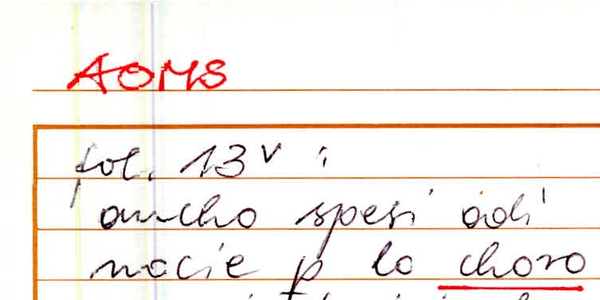 AOMS
fol. 13v :
ancho spesi adì
nocie p lo choro